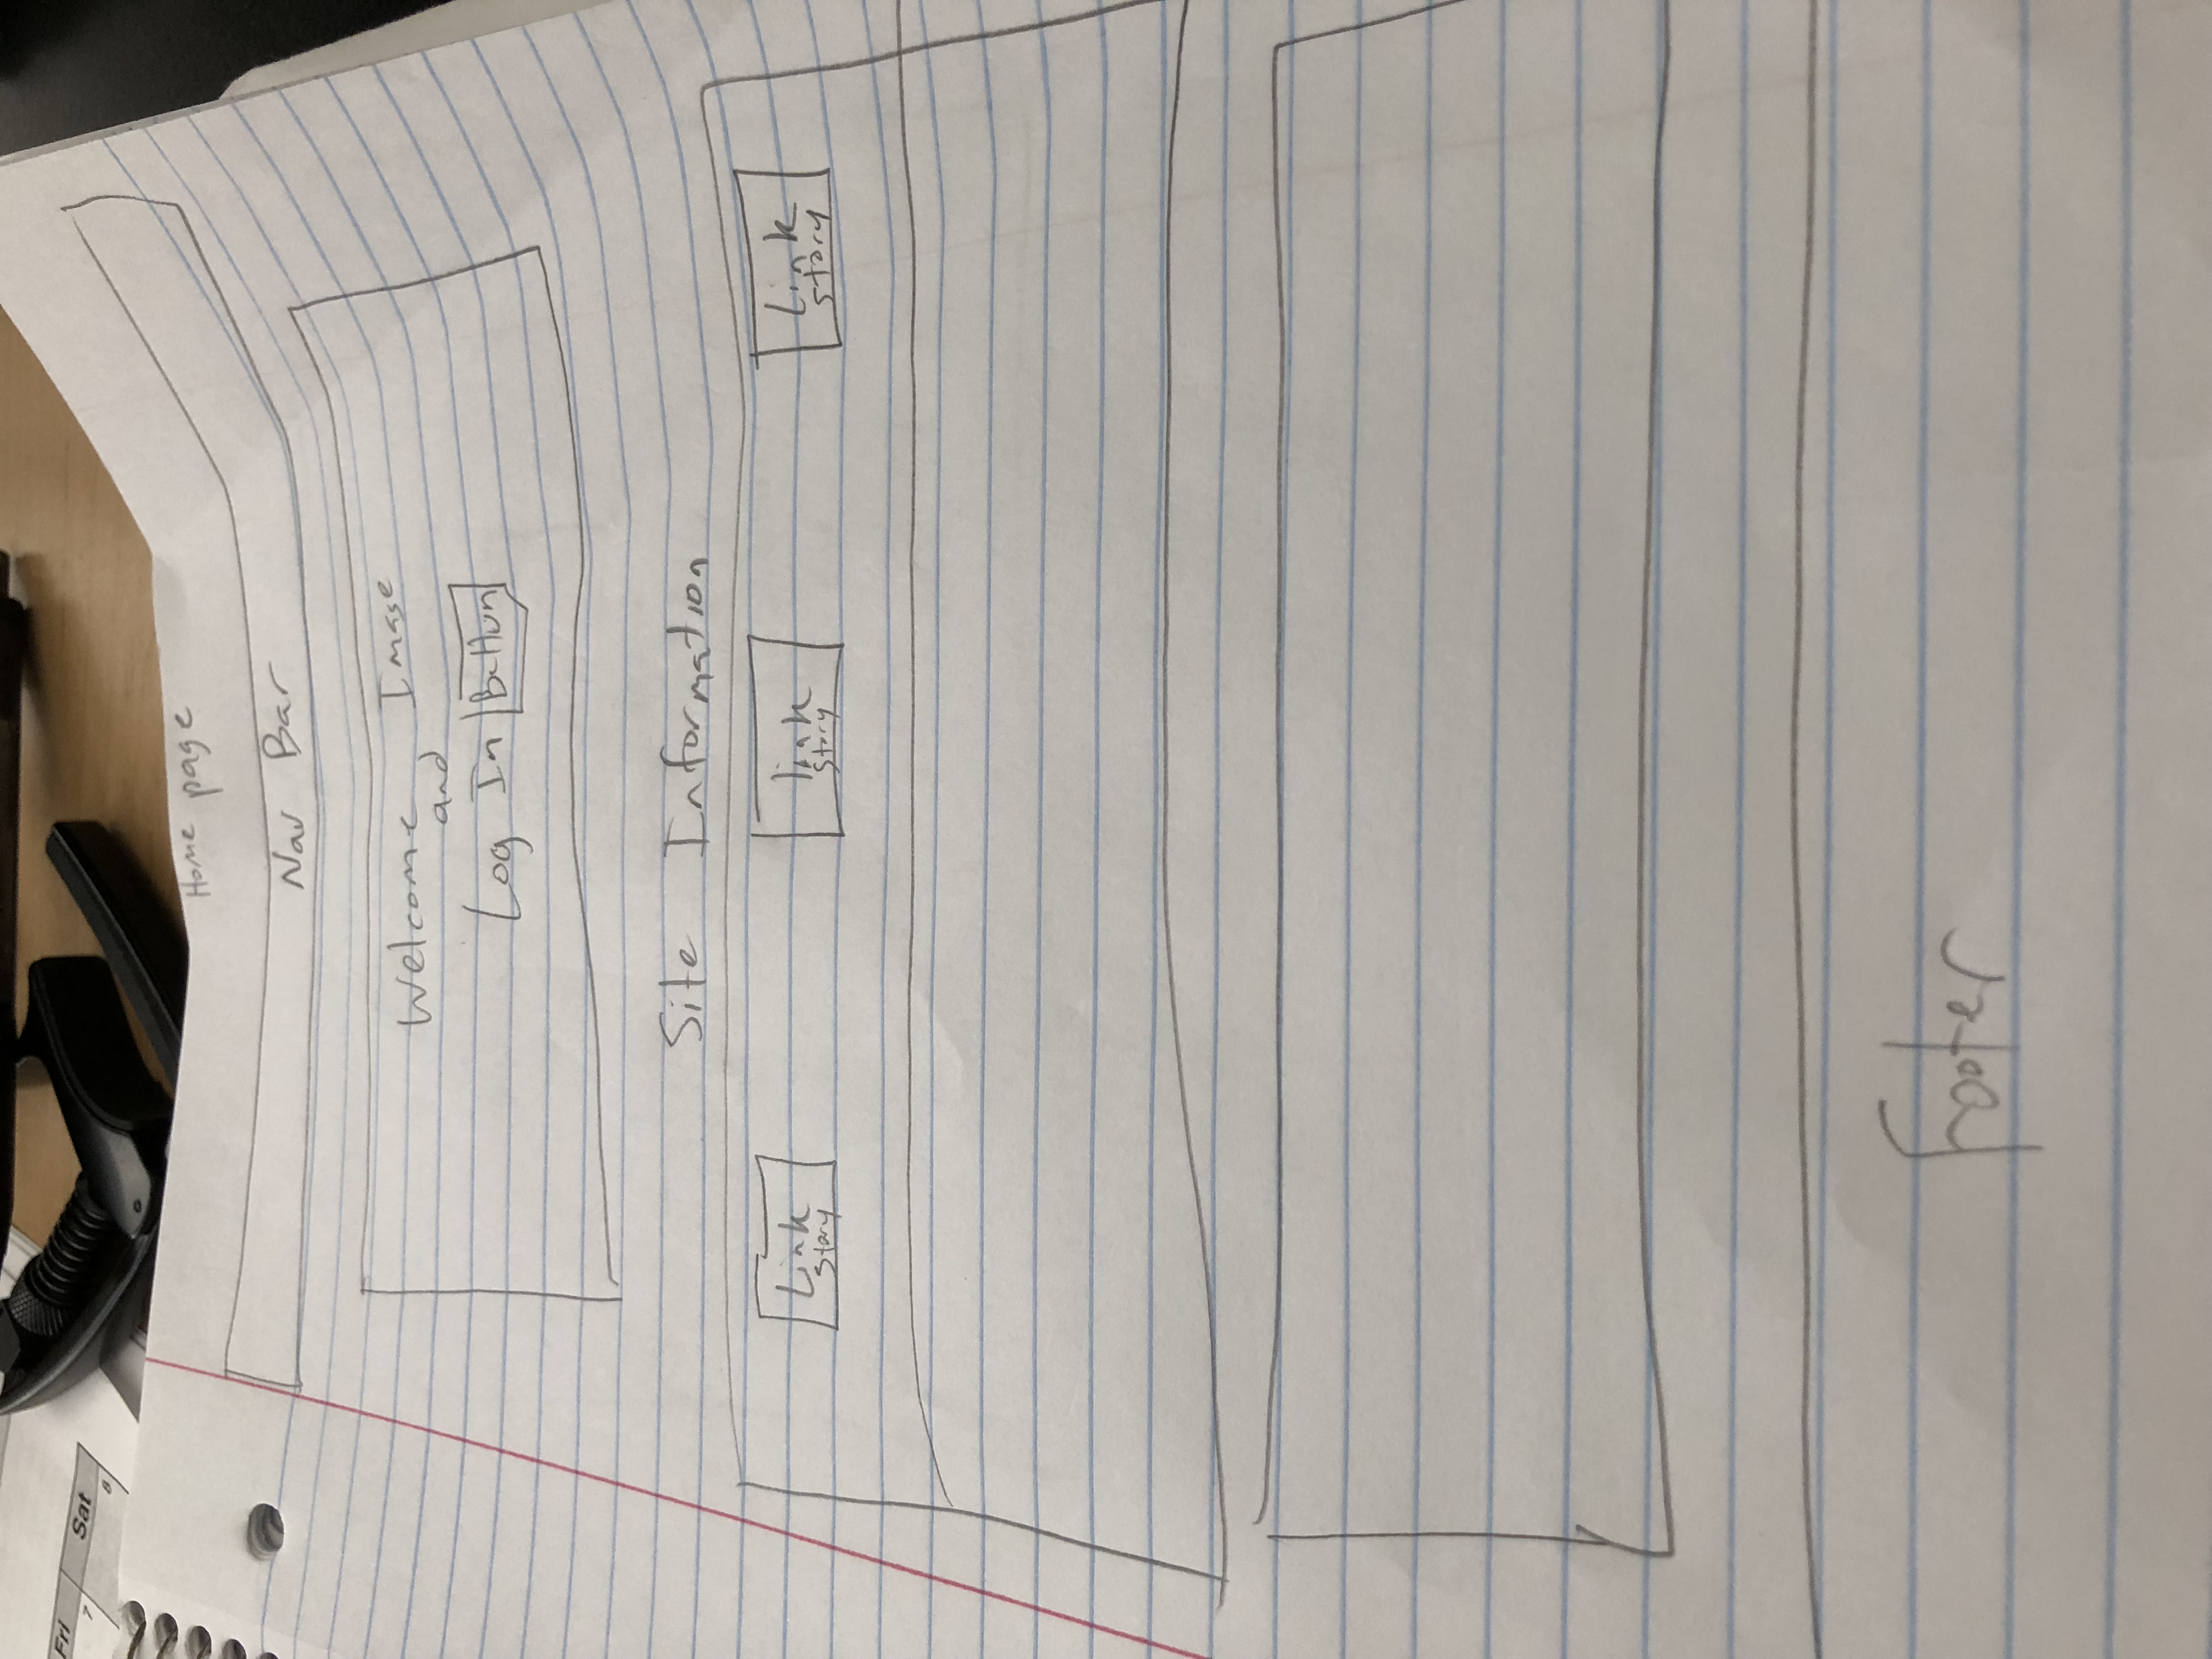 Fri
Sat
7
8
Home page
Nav Bar
Welcome Image
and
Log In Button
Site Information
Link
story
link
story
Link
story
Footer